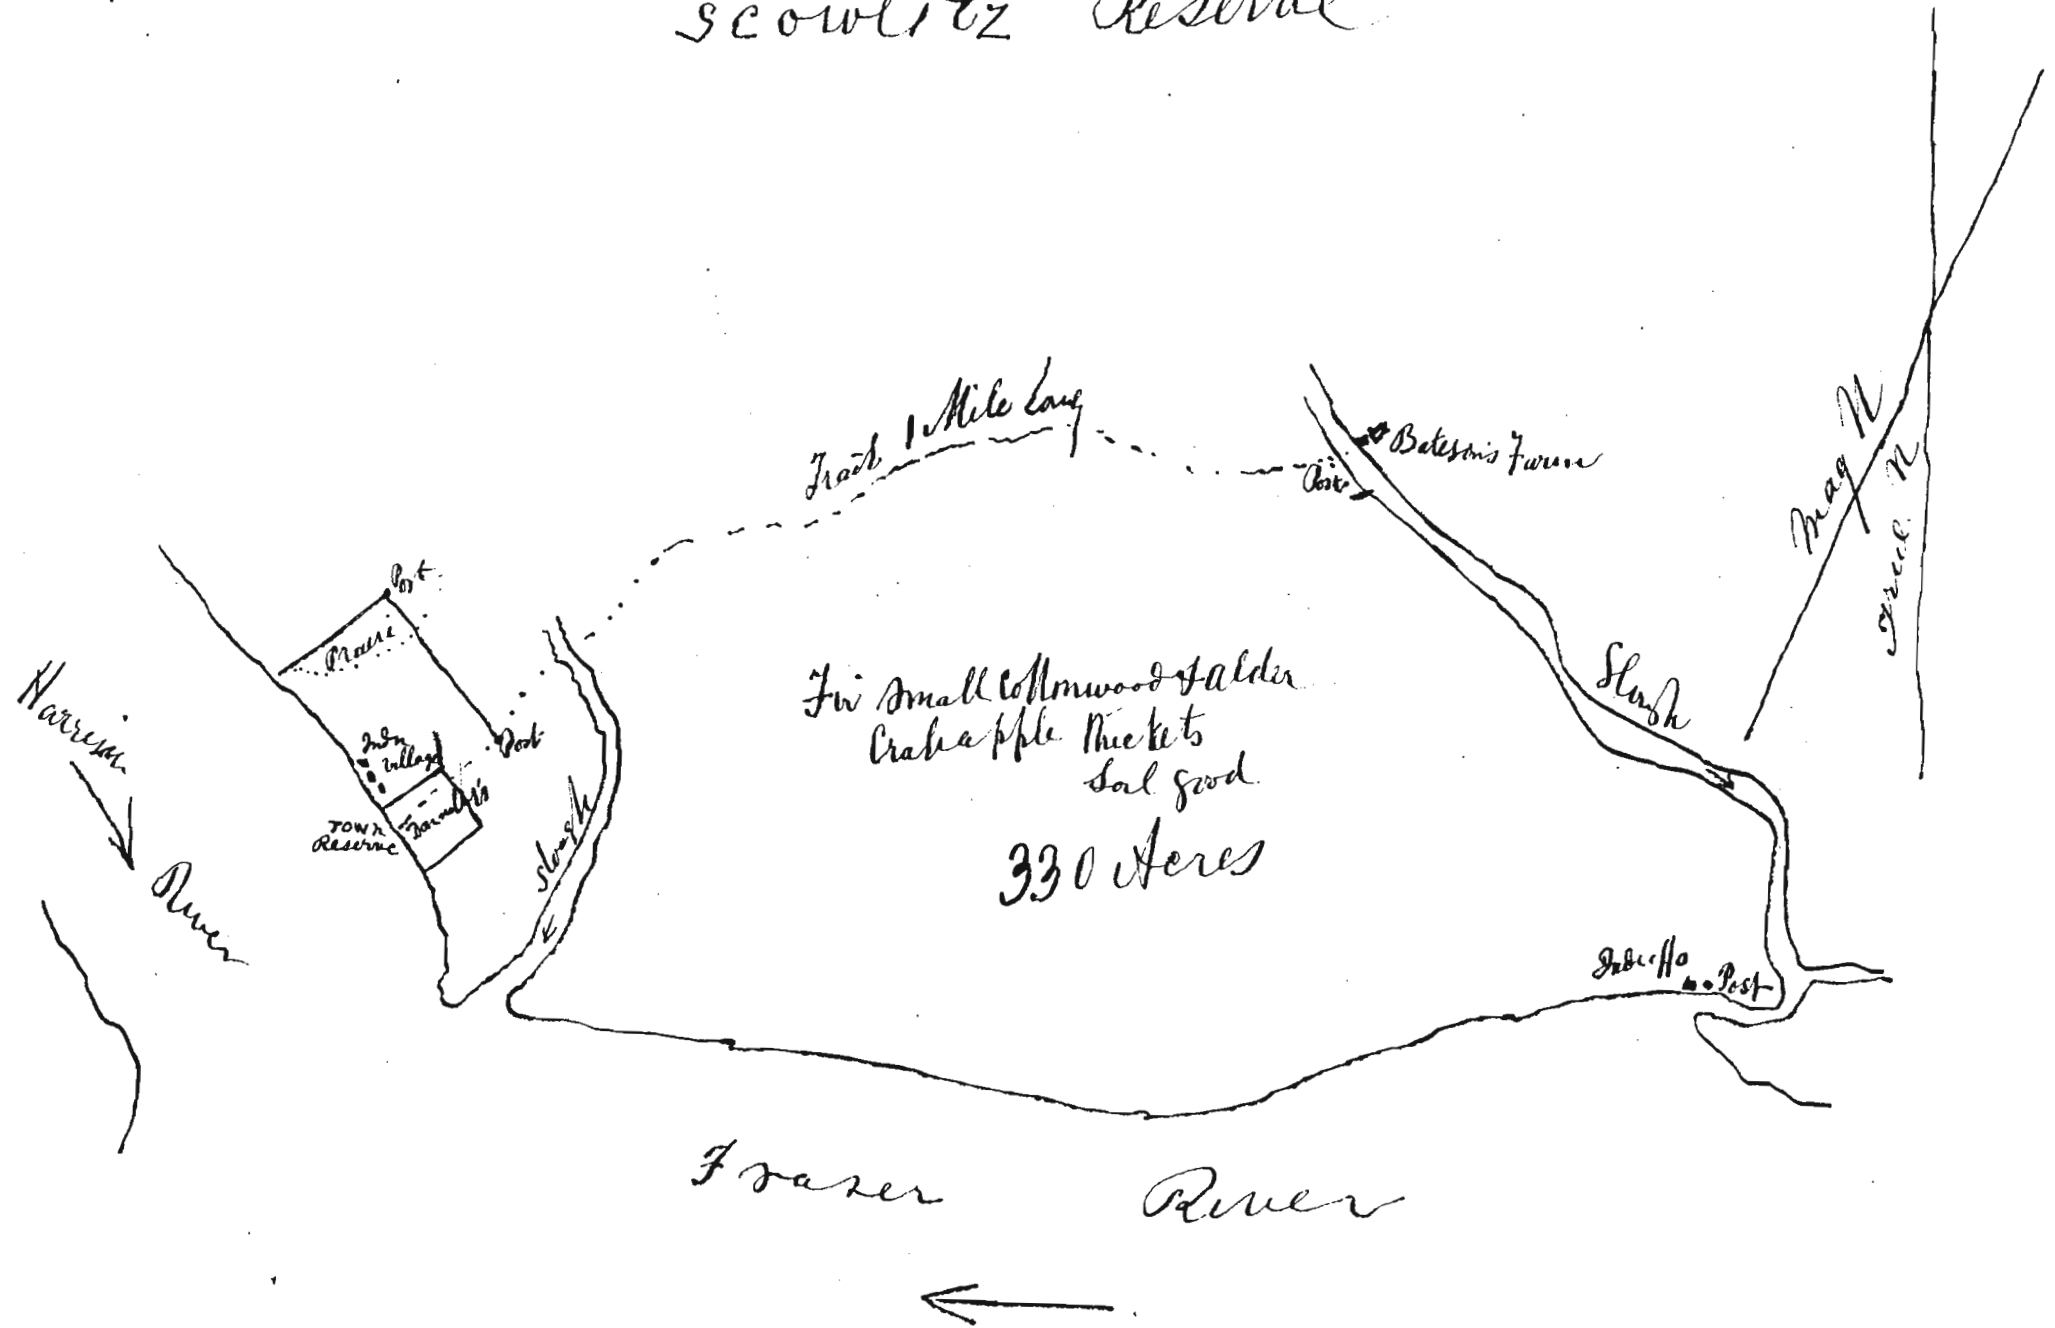 Scowlitz Reserve
Trail 1 Mile Long
Bateson's Farm
Post
Mag N
True N
Post
Prairie
Harrison
River
Indn
Village
Post
TOWN
Reserve
Slough
Fir Small Cottonwood & Alder
Crabapple Thickets
Soil good
330 Acres
Slough
Ho
Post
Fraser River